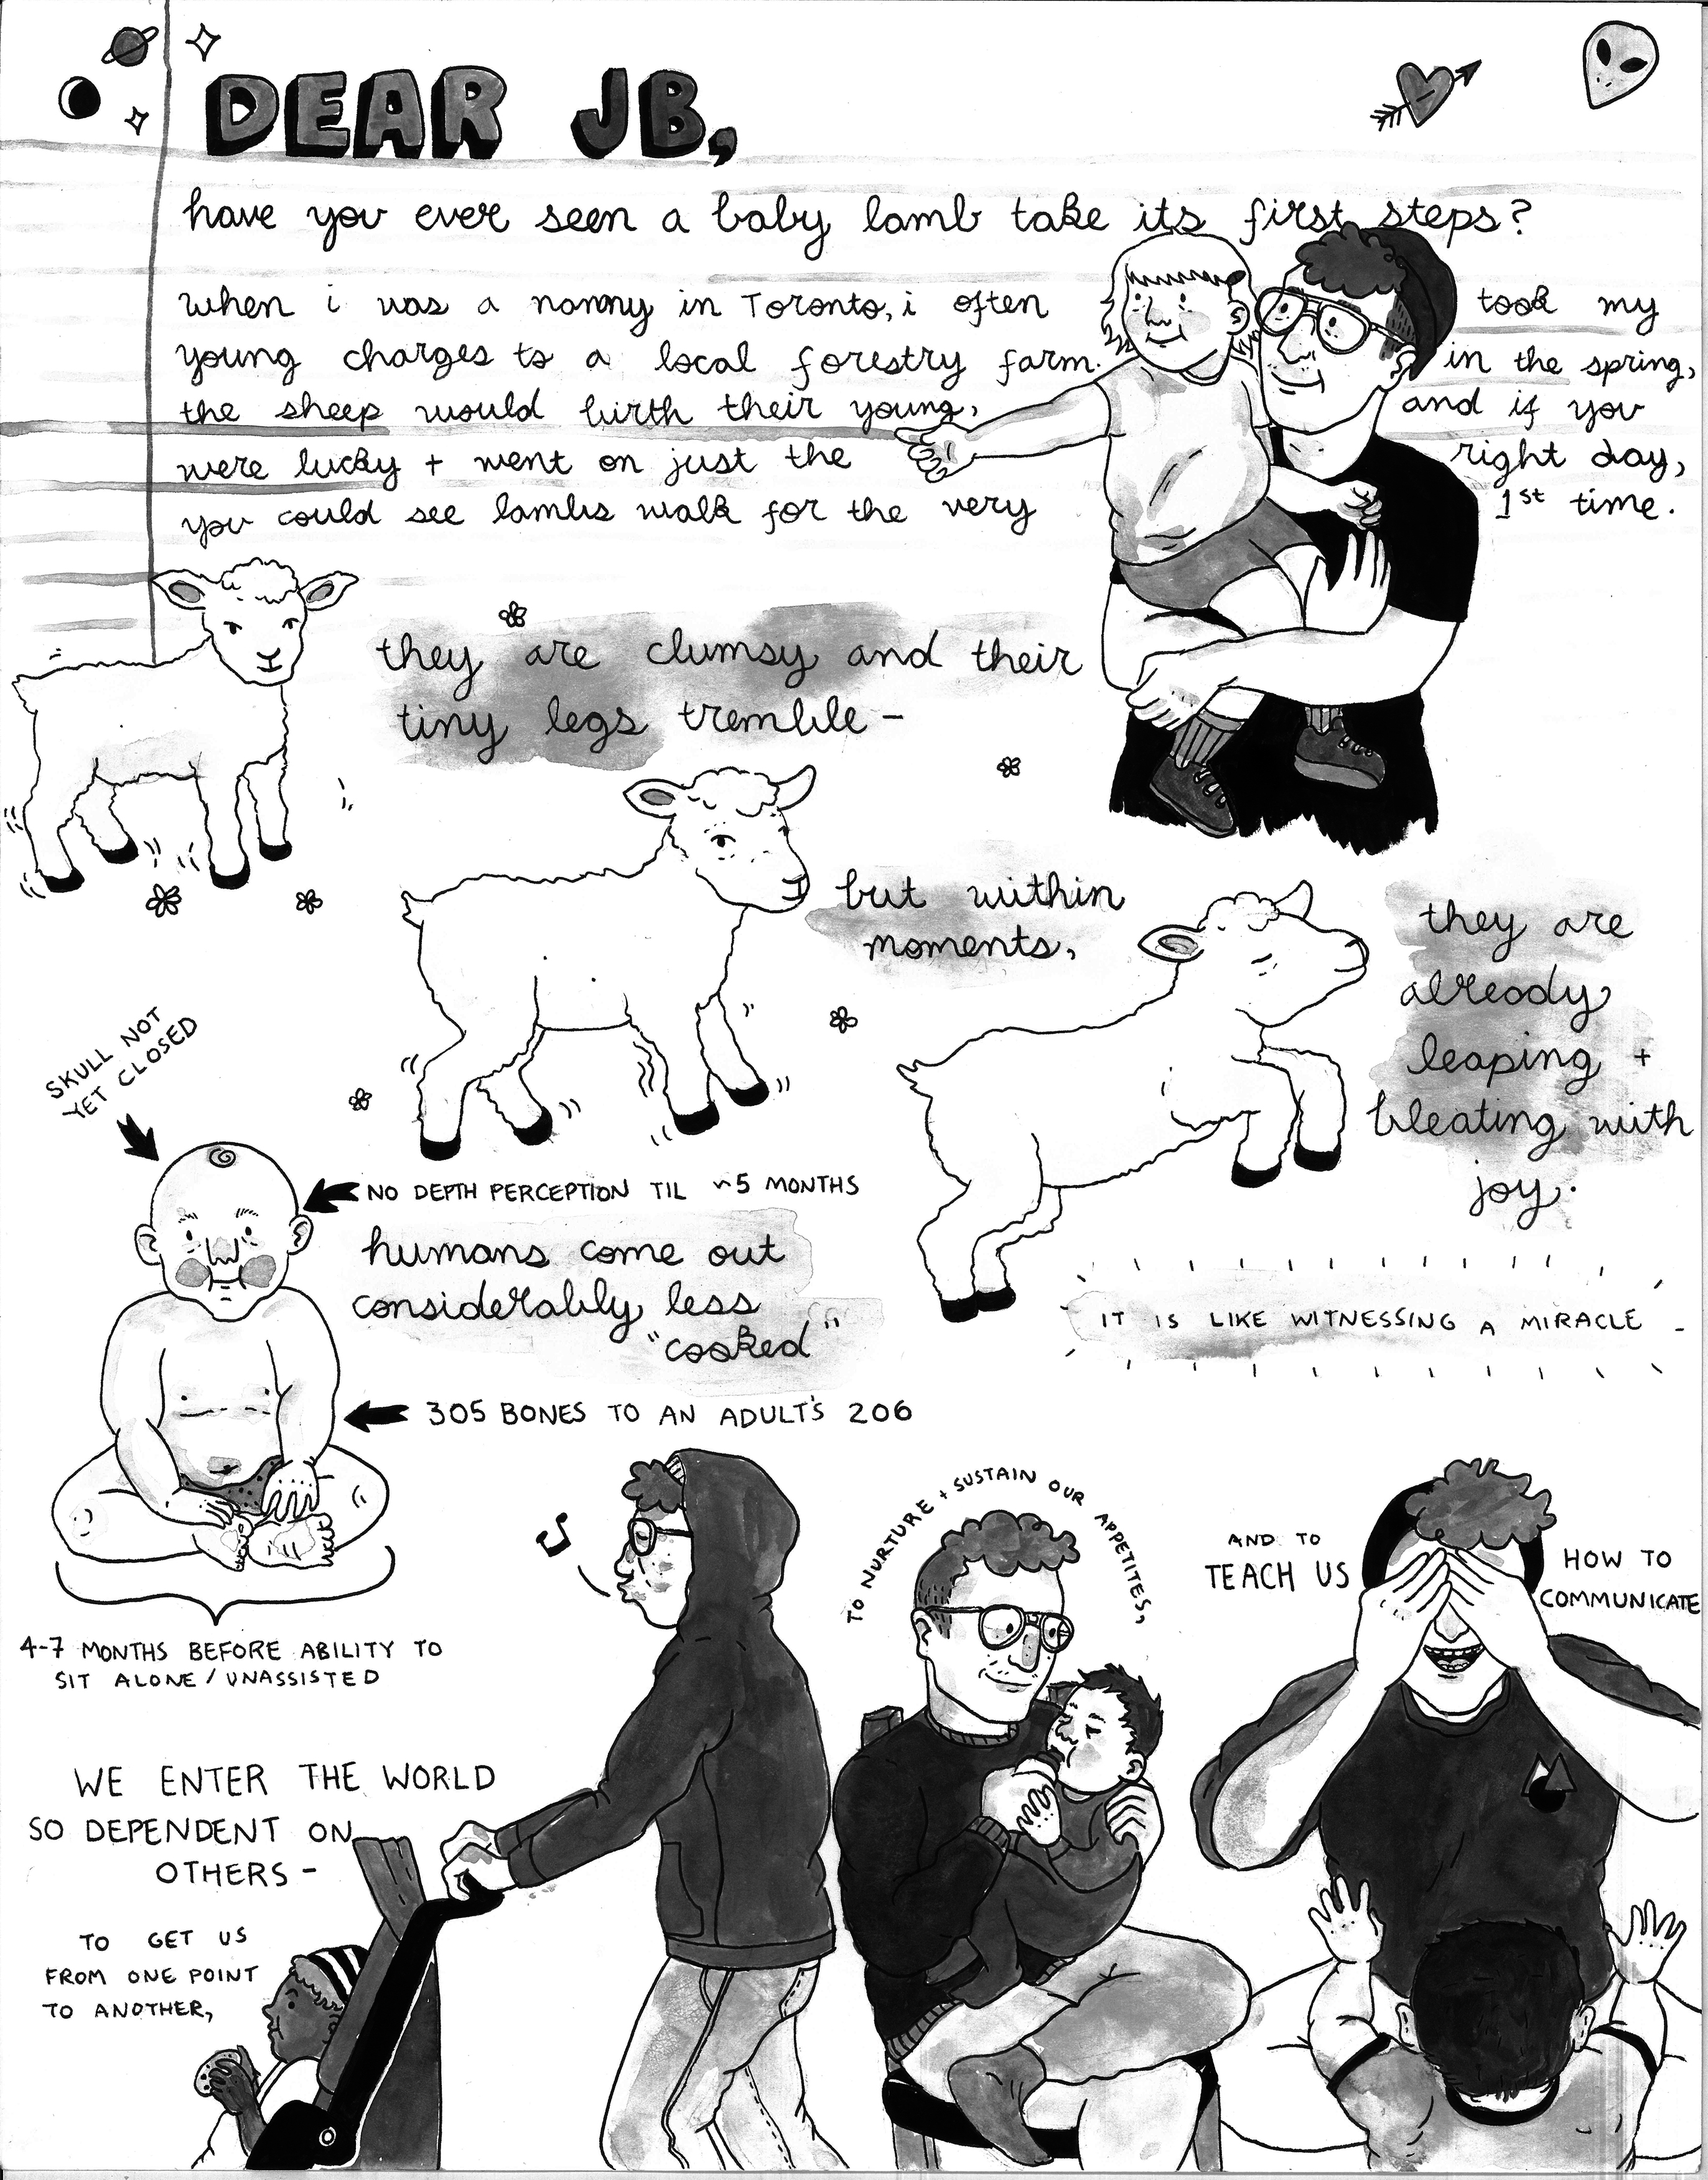 DEAR JB,
have you ever seen a baby lamb take its first steps?
when i was a nanny in Toronto, i often took my
young charges to a local forestry farm. in the spring,
the sheep would birth their young, and if you
were lucky + went on just the right day,
you could see lambs walk for the very 1st time.
they are clumsy and their
tiny legs tremble -
but within
moments,
they are
already
leaping +
bleating with
joy.
IT IS LIKE WITNESSING A MIRACLE -
SKULL NOT
YET CLOSED
NO DEPTH PERCEPTION TIL ~5 MONTHS
humans come out
considerably less
"cooked"
305 BONES TO AN ADULT'S 206
4-7 MONTHS BEFORE ABILITY TO
SIT ALONE / UNASSISTED
WE ENTER THE WORLD
SO DEPENDENT ON
OTHERS -
TO GET US
FROM ONE POINT
TO ANOTHER,
TO NURTURE + SUSTAIN OUR APPETITES,
AND TO
TEACH US
HOW TO
COMMUNICATE